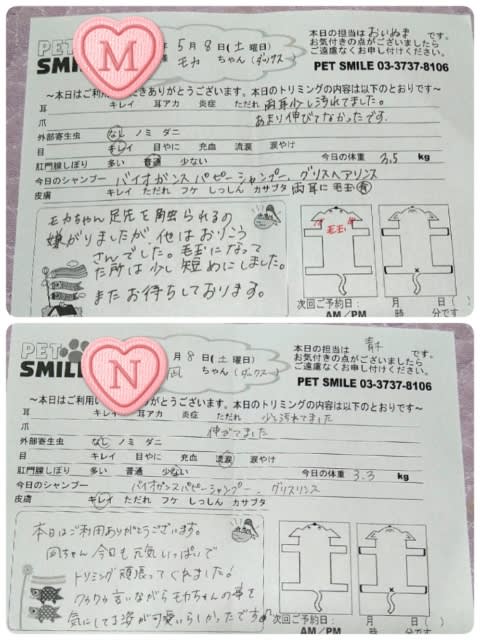 M
PET
SMILE
5月8日(土曜日)
モカ ちゃん(ダックス)
本日の担当は おいぬま です。
お気付きの点がございましたら
ご遠慮なくお申し付けください。
PET SMILE 03-3737-8106
～本日はご利用いただきありがとうございます。本日のトリミングの内容は以下のとおりです～
耳 キレイ 耳アカ 炎症 ただれ 両耳少し汚れてました。
爪 あまり伸びてなかったです。
外部寄生虫 なし ノミ ダニ
目 キレイ 目やに 充血 流涙 涙やけ
肛門腺しぼり 多い 普通 少ない 今日の体重 3.5 kg
今日のシャンプー バイオガンスパピーシャンプー、グリスヘアリンス
皮膚 キレイ ただれ フケ しっしん カサブタ 両耳に毛玉 有
モカちゃん足先を触られるの
嫌がりましたが、他はおりこう
さんでした。毛玉になって
た所は少し短めにしました。
またお待ちしております。
毛玉
次回ご予約日: 月 日( )
AM/PM 時 分です
N
PET
SMILE
月8日(土曜日)
凪 ちゃん(ダックス)
本日の担当は です。
お気付きの点がございましたら
ご遠慮なくお申し付けください。
PET SMILE 03-3737-8106
～本日はご利用 ありがとうございます。本日のトリミングの内容は以下のとおりです～
耳 キレイ 耳アカ 炎症 ただれ 少し汚れてました
爪 伸びてました
外部寄生虫 なし ノミ ダニ
目 キレイ 目やに 充血 流涙 涙やけ
肛門腺しぼり 多い 普通 少ない 今日の体重 3.3 kg
今日のシャンプー バイオガンスパピーシャンプー、グリスリンス
皮膚 キレイ ただれ フケ しっしん カサブタ
本日はご利用ありがとうございます。
凪ちゃん今日も元気いっぱいで
トリミング頑張ってくれました!
ワゥワゥ言いながらモカちゃんの事を
気にしてる姿が可愛いらしかったです
次回ご予約日: 月 日( )
AM/PM 時 分です